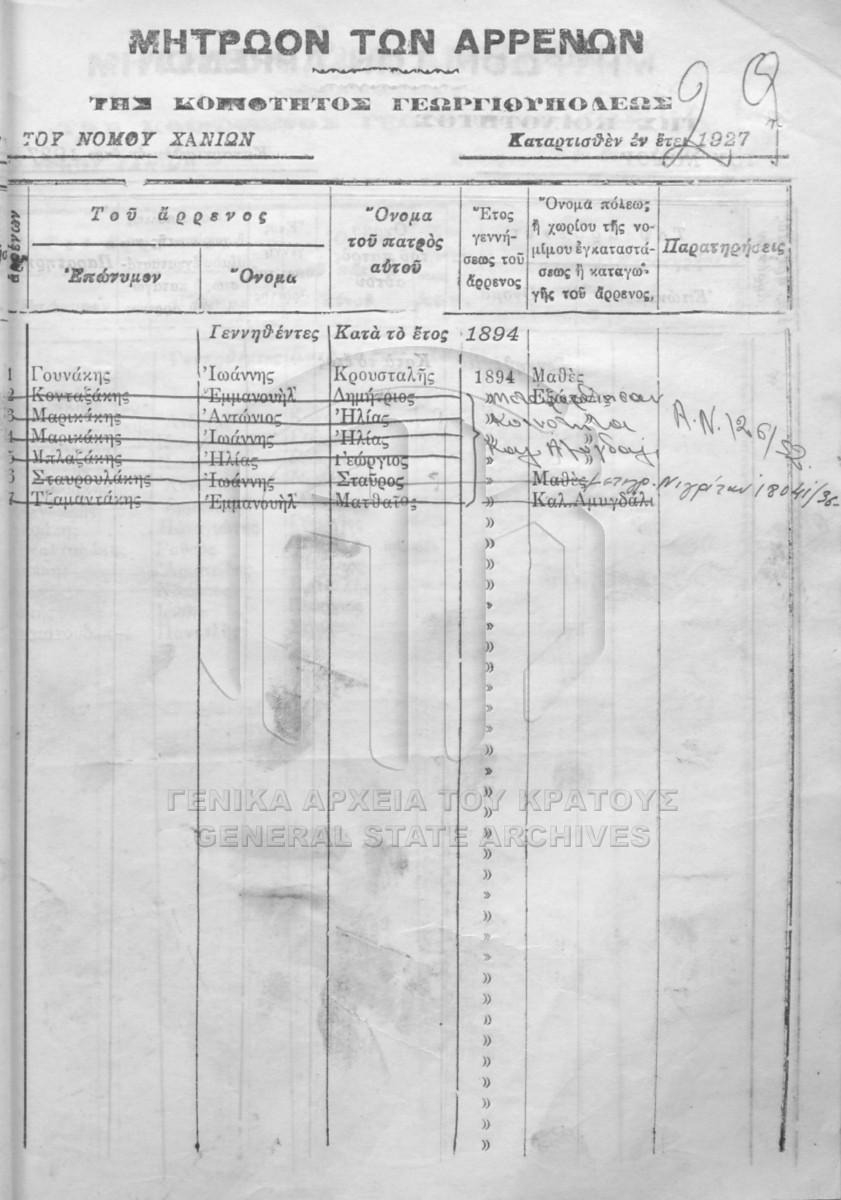 ΜΗΤΡΩΟΝ ΤΩΝ ΑΡΡΕΝΩΝ
ΤΗΣ ΚΟΙΝΟΤΗΤΟΣ ΓΕΩΡΓΙΟΥΠΟΛΕΩΣ
ΤΟΥ ΝΟΜΟΥ ΧΑΝΙΩΝ Καταρτισθὲν ἐν ἔτει 1927
Τοῦ ἄρρενος
Ἐπώνυμον Ὄνομα
Ὄνομα
τοῦ πατρὸς
αὐτοῦ
Ἔτος
γεννή-
σεως τοῦ
ἄρρενος
Ὄνομα πόλεως
ἢ χωρίου τῆς νο-
μίμου ἐγκαταστά-
σεως ἢ καταγω-
γῆς τοῦ ἄρρενος.
Παρατηρήσεις
Γεννηθέντες Κατὰ τὸ ἔτος 1894
1 Γουνάκης Ἰωάννης Κρουσταλῆς 1894 Μαθὲς
2 Κονταξάκης Ἐμμανουὴλ Δημήτριος »
3 Μαρικάκης Ἀντώνιος Ἠλίας » Κοινότητα
4 Μαρικάκης Ἰωάννης Ἠλίας » Καλ. Αμυγδαλ
5 Μπλαζάκης Ἠλίας Γεώργιος »
Α.Ν. 126/52.
6 Σταυρουλάκης Ἰωάννης Σταῦρος » Μαθὲς
7 Τζαμαντάκης Ἐμμανουὴλ Ματθαῖος » Καλ. Αμυγδάλι
ΓΕΝΙΚΑ ΑΡΧΕΙΑ ΤΟΥ ΚΡΑΤΟΥΣ
GENERAL STATE ARCHIVES